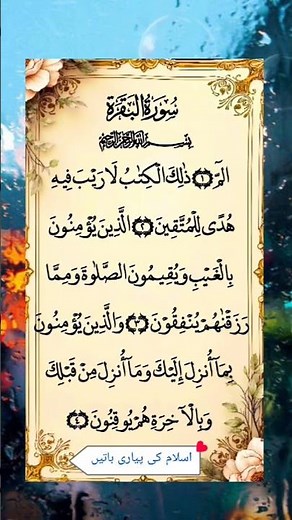 سُوْرَةُ الْبَقَرَةِ
بِسْمِ اللّٰهِ الرَّحْمٰنِ الرَّحِيْمِ
الٓمّٓ ۝١ ذٰلِكَ الْكِتٰبُ لَا رَيْبَ فِيْهِ
هُدًى لِّلْمُتَّقِيْنَ ۝٢ الَّذِيْنَ يُؤْمِنُوْنَ
بِالْغَيْبِ وَيُقِيْمُوْنَ الصَّلٰوةَ وَمِمَّا
رَزَقْنٰهُمْ يُنْفِقُوْنَ ۝٣ وَالَّذِيْنَ يُؤْمِنُوْنَ
بِمَآ أُنْزِلَ إِلَيْكَ وَمَآ أُنْزِلَ مِنْ قَبْلِكَ
وَبِالْاٰخِرَةِ هُمْ يُوْقِنُوْنَ ۝٤
اسلام کی پیاری باتیں